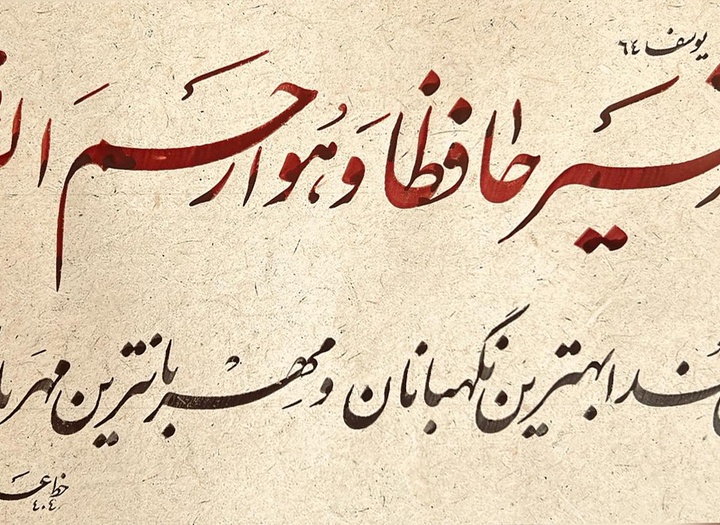 یوسف ٦٤
خیر حافظا وَهُوَ ارحَم ال
خدا بهترین نگهبانان و مهربانترین مهربا
خط
٤٠٤